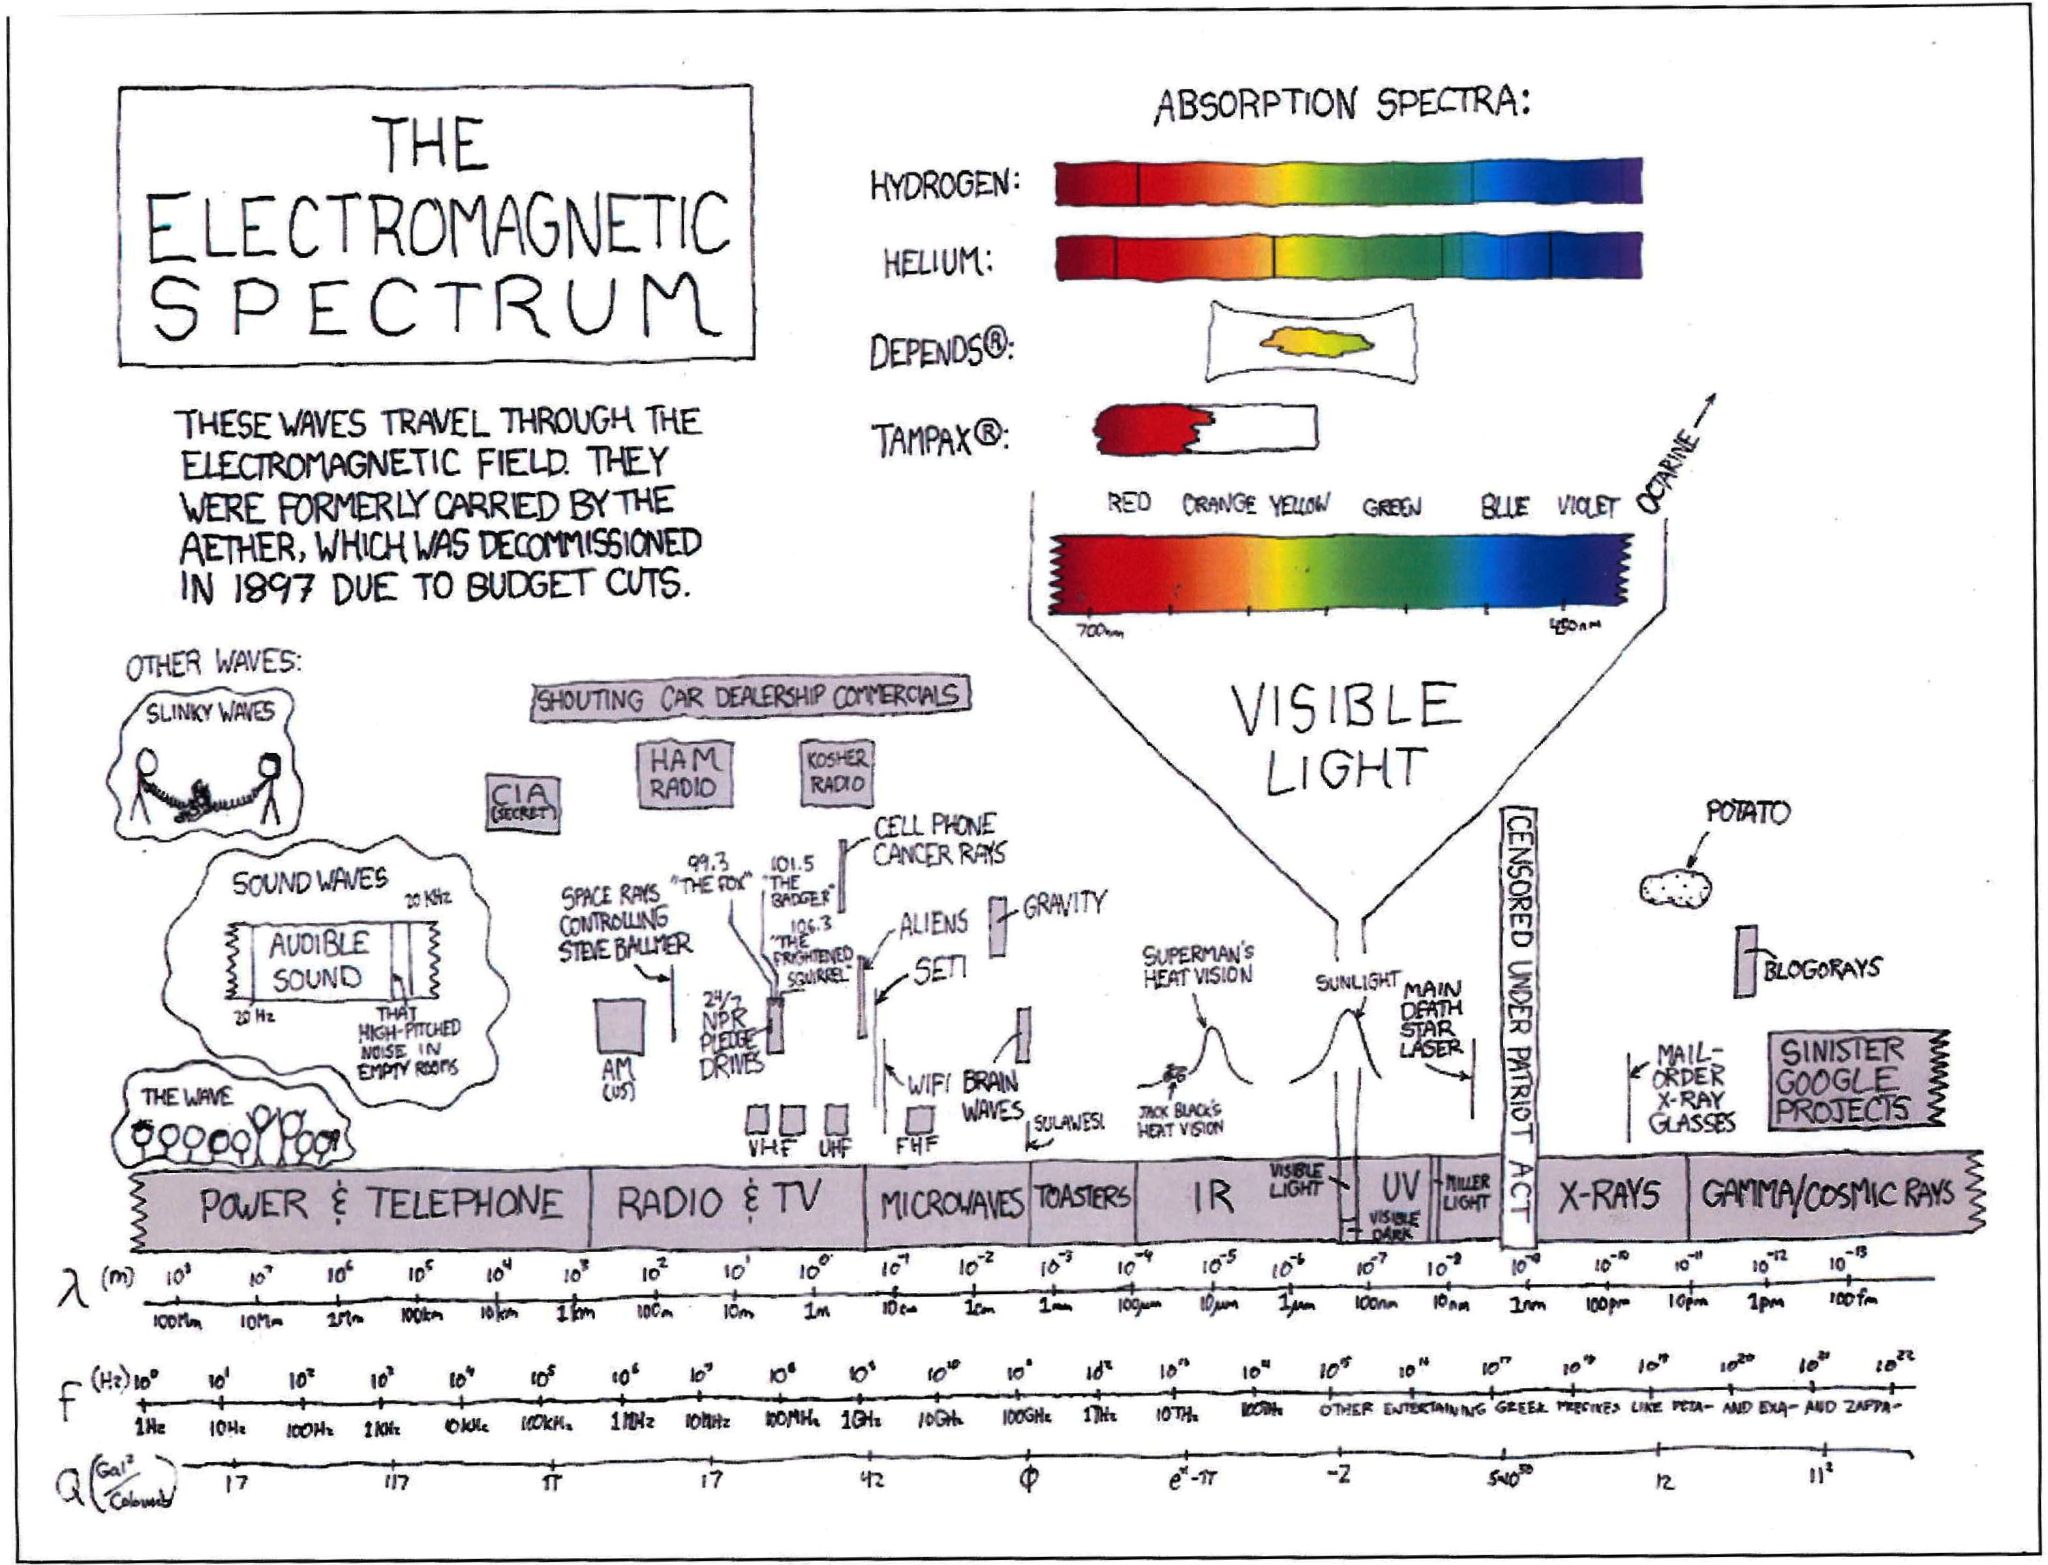 THE
ELECTROMAGNETIC
SPECTRUM
THESE WAVES TRAVEL THROUGH THE
ELECTROMAGNETIC FIELD. THEY
WERE FORMERLY CARRIED BY THE
AETHER, WHICH WAS DECOMMISSIONED
IN 1897 DUE TO BUDGET CUTS.
ABSORPTION SPECTRA:
HYDROGEN:
HELIUM:
DEPENDS®:
TAMPAX®:
RED ORANGE YELLOW GREEN BLUE VIOLET OCTARINE
700nm 450nm
VISIBLE
LIGHT
OTHER WAVES:
SLINKY WAVES
SOUND WAVES
20 KHz
AUDIBLE
SOUND
20 Hz
THAT
HIGH-PITCHED
NOISE IN
EMPTY ROOMS
THE WAVE
SHOUTING CAR DEALERSHIP COMMERCIALS
CIA
(SECRET)
HAM
RADIO
KOSHER
RADIO
CELL PHONE
CANCER RAYS
SPACE RAYS
CONTROLLING
STEVE BALLMER
99.3
"THE FOX"
101.5
"THE
BADGER"
106.3
"THE
FRIGHTENED
SQUIRREL"
24/7
NPR
PLEDGE
DRIVES
ALIENS
SETI
GRAVITY
AM
(US)
VHF
UHF
FHF
WIFI
BRAIN
WAVES
SULAWESI
SUPERMAN'S
HEAT VISION
JACK BLACK'S
HEAT VISION
SUNLIGHT
MAIN
DEATH
STAR
LASER
CENSORED UNDER PATRIOT ACT
POTATO
BLOGORAYS
MAIL-
ORDER
X-RAY
GLASSES
SINISTER
GOOGLE
PROJECTS
POWER & TELEPHONE
RADIO & TV
MICROWAVES
TOASTERS
IR
VISIBLE
LIGHT
VISIBLE
DARK
UV
MILLER
LIGHT
X-RAYS
GAMMA/COSMIC RAYS
λ (m) 10⁷ 10⁶ 10⁵ 10⁴ 10³ 10² 10¹ 10⁰ 10⁻¹ 10⁻² 10⁻³ 10⁻⁴ 10⁻⁵ 10⁻⁶ 10⁻⁷ 10⁻⁸ 10⁻⁹ 10⁻¹⁰ 10⁻¹¹ 10⁻¹² 10⁻¹³
100Mm 10Mm 1Mm 100km 10km 1km 100m 10m 1m 10cm 1cm 1mm 100μm 10μm 1μm 100nm 10nm 1nm 100pm 10pm 1pm 100fm
f (Hz) 10⁰ 10¹ 10² 10³ 10⁴ 10⁵ 10⁶ 10⁷ 10⁸ 10⁹ 10¹⁰ 10¹² 10¹³ 10¹⁴ 10¹⁵ 10¹⁶ 10¹⁷ 10¹⁸ 10¹⁹ 10²⁰ 10²¹ 10²²
1Hz 10Hz 100Hz 1KHz 10KHz 100KHz 1MHz 10MHz 100MHz 1GHz 10GHz 100GHz 1THz 10THz 100THz OTHER ENTERTAINING GREEK PREFIXES LIKE PETA- AND EXA- AND ZAPPA-
Q (Gal²/Coloumb)
17 117 π 17 42 φ eπ-π -2 5×10⁵⁰ 12 11²